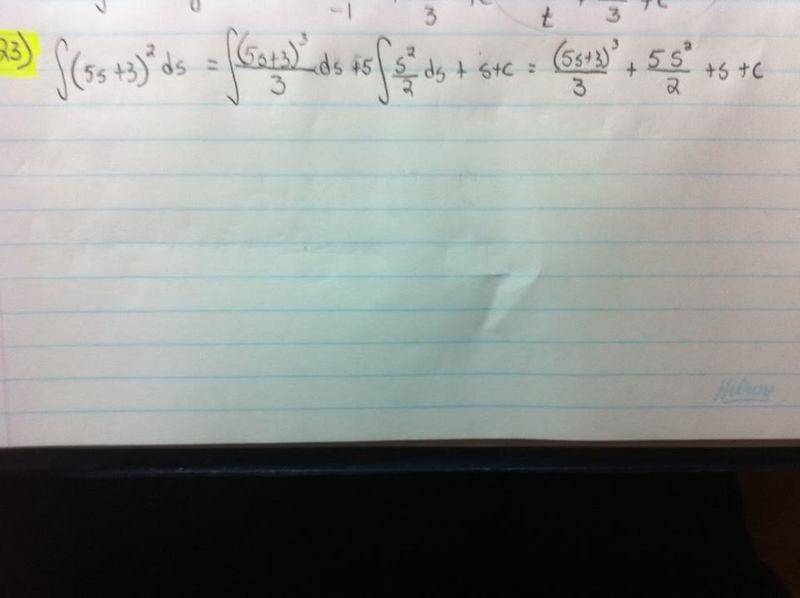 -1 3 t 3 +c
23) ∫(5s+3)² ds = ∫(5s+3)³/3 ds +5∫s²/2 ds + s+c = (5s+3)³/3 + 5s²/2 +s +c
Hilroy